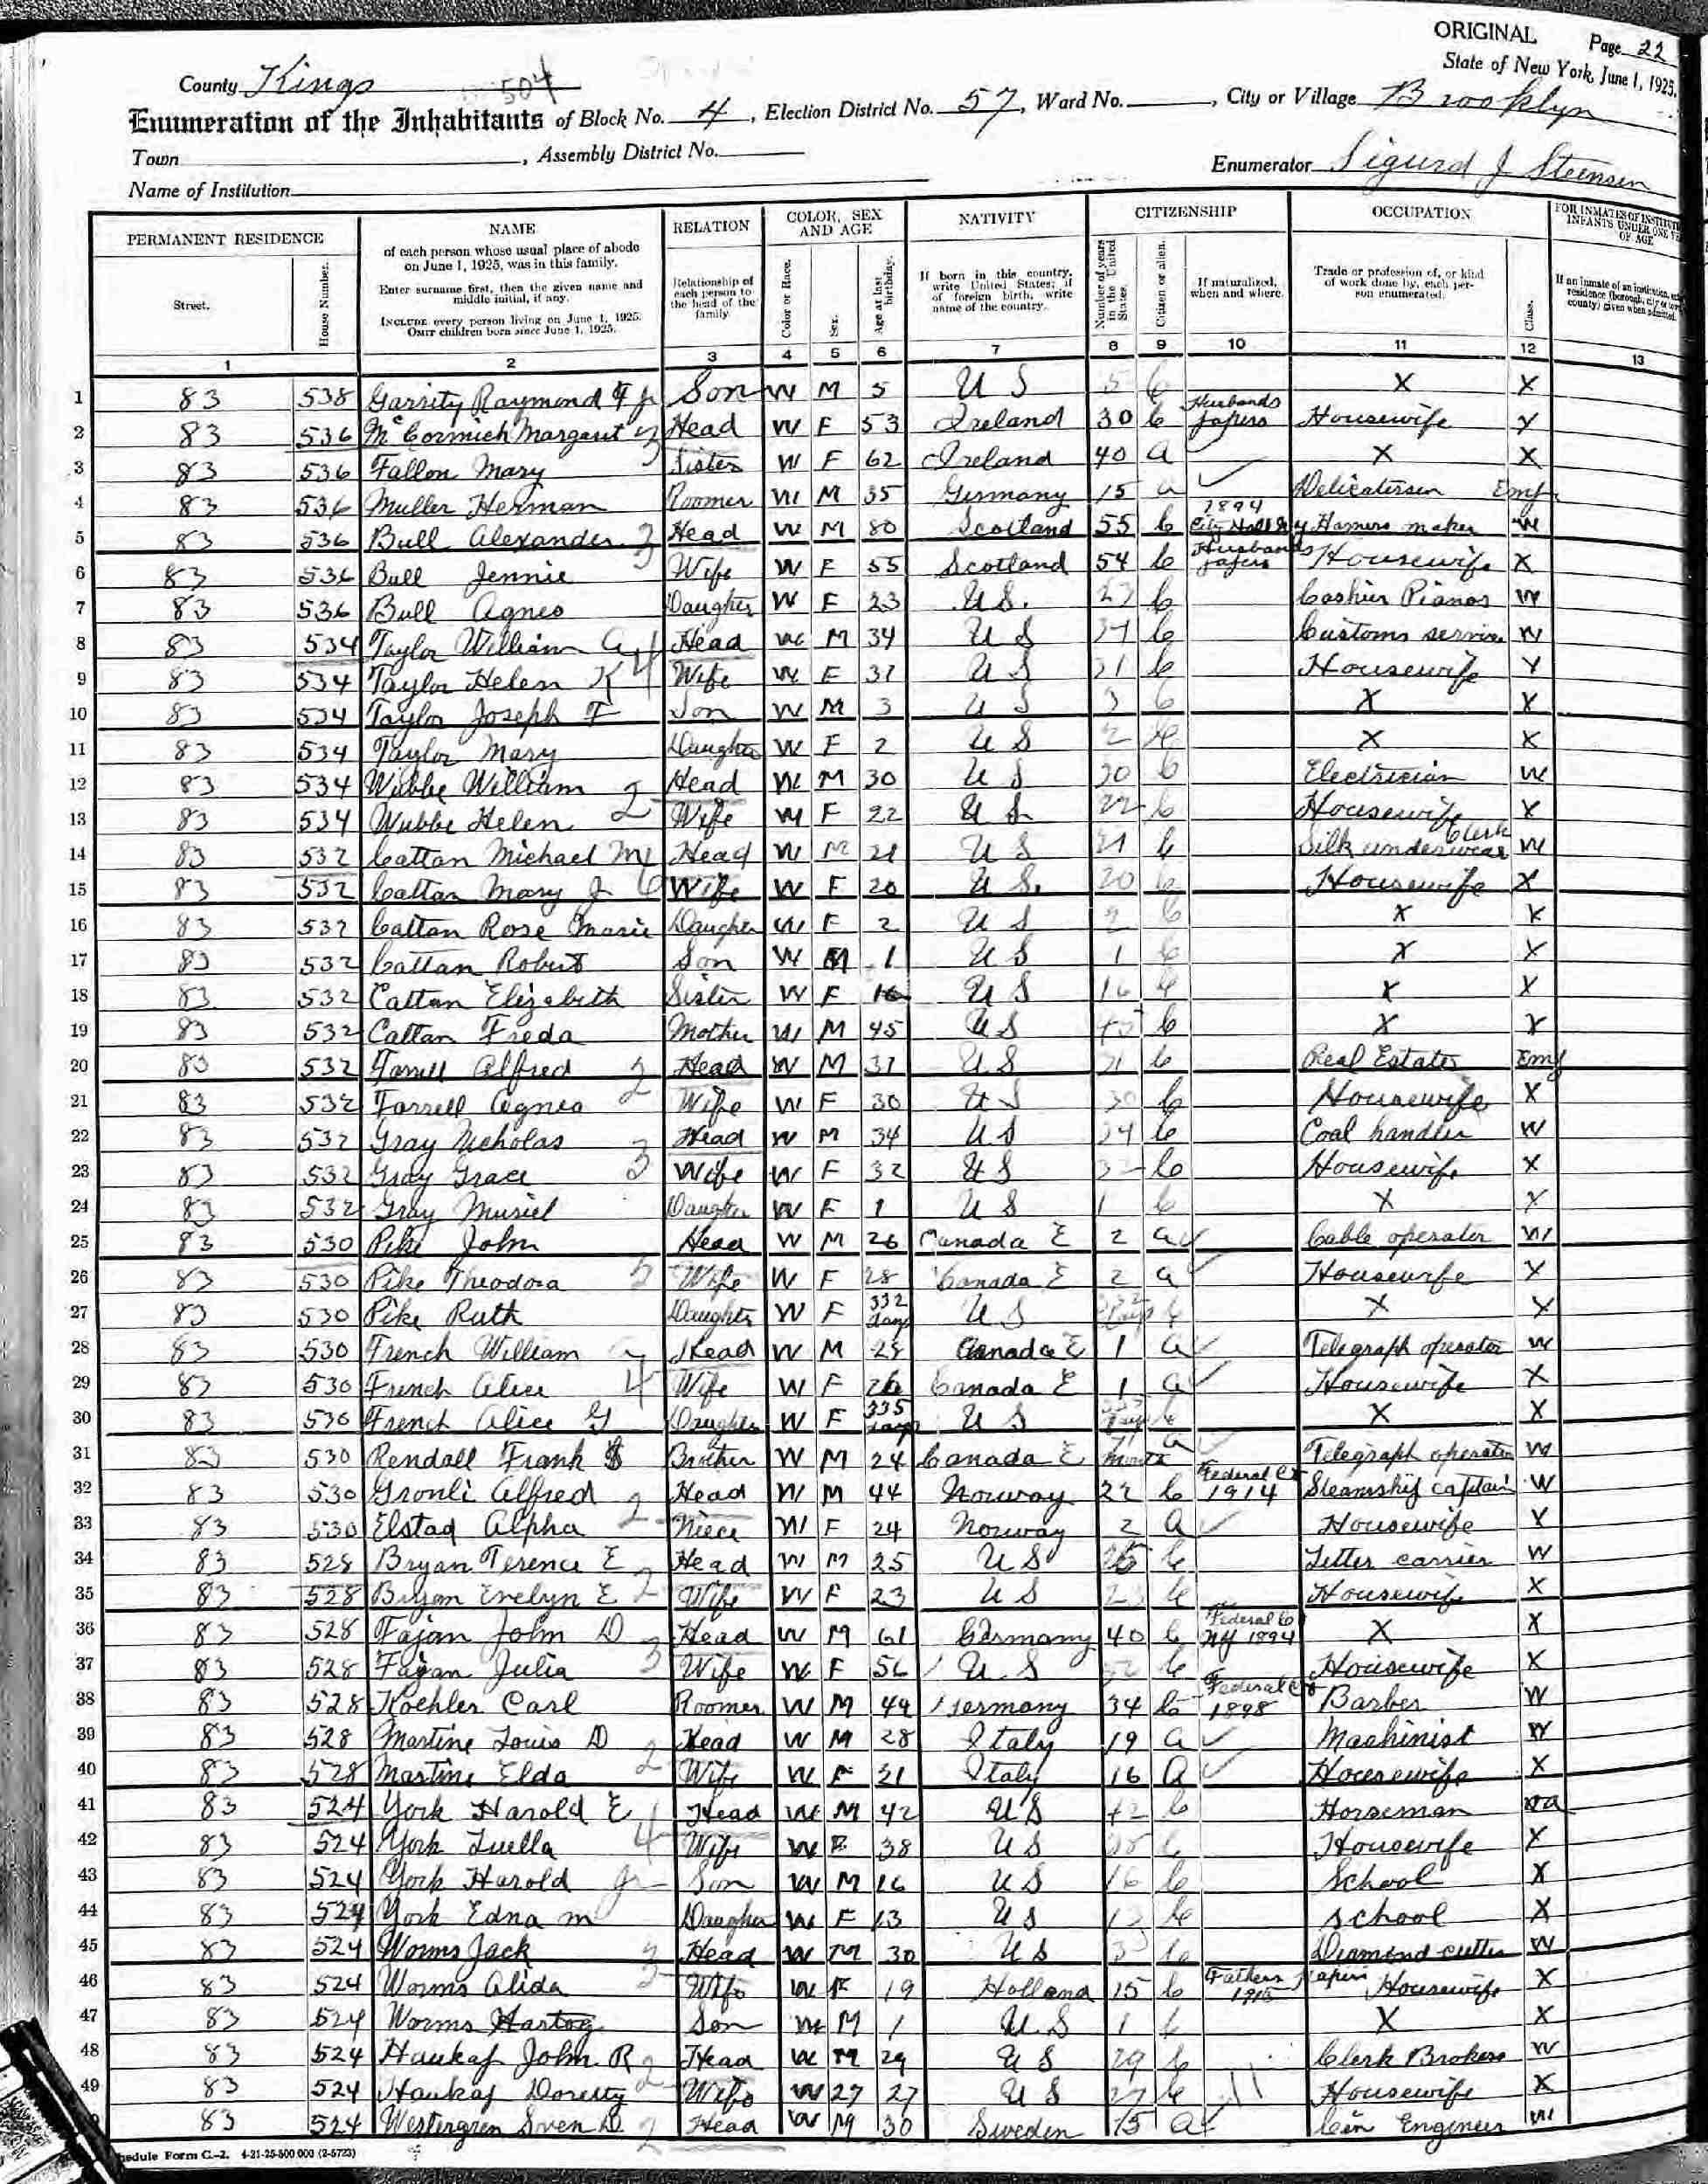 ORIGINAL Page 22
State of New York, June 1, 1925.
County Kings 504
Enumeration of the Inhabitants of Block No. 4, Election District No. 57, Ward No. , City or Village Brooklyn
Town , Assembly District No.
Enumerator Sigurd J Steensen
Name of Institution
PERMANENT RESIDENCE NAME RELATION COLOR, SEX AND AGE NATIVITY CITIZENSHIP OCCUPATION
Street. House Number. of each person whose usual place of abode on June 1, 1925, was in this family. Enter surname first, then the given name and middle initial, if any. INCLUDE every person living on June 1, 1925. OMIT children born since June 1, 1925. Relationship of each person to the head of the family. Color or Race. Sex. Age at last birthday. If born in this country, write United States; if of foreign birth, write name of the country. Number of years in the United States. Citizen or alien. If naturalized, when and where. Trade or profession of, or kind of work done by, each person enumerated. Class.
1 2 3 4 5 6 7 8 9 10 11 12 13
1 83 538 Garrity Raymond F Jr Son W M 5 U S 5 C X X
2 83 536 McCormick Margaret Head W F 53 Ireland 30 C Husbands papers Housewife X
3 83 536 Fallon Mary Sister W F 62 Ireland 40 a X X
4 83 536 Muller Herman Roomer W M 35 Germany 15 a Delicatessen Emp
5 83 536 Bull Alexander 3 Head W M 80 Scotland 55 C 1894 City Hall NY maker W
6 83 536 Bull Jennie Wife W F 55 Scotland 54 C Husbands papers Housewife X
7 83 536 Bull Agnes Daughter W F 23 U S. 23 C Cashier Pianos W
8 83 534 Taylor William A Head W M 34 U S 34 C Customs service W
9 83 534 Taylor Helen K 4 Wife W F 31 U S 31 C Housewife X
10 83 534 Taylor Joseph F Son W M 3 U S 3 C X X
11 83 534 Taylor Mary Daughter W F 2 U S 2 C X X
12 83 534 Wubbe William 2 Head W M 30 U S 30 C Electrician W
13 83 534 Wubbe Helen Wife W F 22 U S 22 C Housewife X
14 83 532 Cattan Michael M Head W M 21 U S 21 C Silk underwear Clerk W
15 83 532 Cattan Mary J 6 Wife W F 20 U S. 20 C Housewife X
16 83 532 Cattan Rose Marie Daughter W F 2 U S 2 C X X
17 83 532 Cattan Robert Son W M 1 U S 1 C X X
18 83 532 Cattan Elizabeth Sister W F 16 U S 16 C X X
19 83 532 Cattan Freda Mother W M 45 U S 45 C X X
20 83 532 Farrell Alfred 2 Head W M 31 U S 31 C Real Estate Emp
21 83 532 Farrell Agnes Wife W F 30 U S 30 C Housewife X
22 83 532 Gray Nicholas Head W M 34 U S 34 C Coal handler W
23 83 532 Gray Grace 3 Wife W F 32 U S 32 C Housewife X
24 83 532 Gray Muriel Daughter W F 1 U S 1 C X X
25 83 530 Pike John Head W M 26 Canada E 2 a Cable operator W
26 83 530 Pike Theodora 3 Wife W F 28 Canada E 2 a Housewife X
27 83 530 Pike Ruth Daughter W F 332 days U S 332 days C X X
28 83 530 French William Head W M 28 Canada E 1 a Telegraph operator W
29 83 530 French Alice 4 Wife W F 26 Canada E 1 a Housewife X
30 83 530 French Alice G Daughter W F 335 days U S 335 days C X X
31 83 530 Rendall Frank Brother W M 24 Canada E months a Telegraph operator W
32 83 530 Gronli Alfred 2 Head W M 44 Norway 22 C Federal Ct 1914 Steamship captain W
33 83 530 Elstad Alpha Niece W F 24 Norway 2 a Housewife X
34 83 528 Bryan Terence E Head W M 25 U S 25 C Letter carrier W
35 83 528 Bryan Evelyn E 2 Wife W F 23 U S 23 C Housewife X
36 83 528 Fajan John D Head W M 61 Germany 40 C Federal Ct NY 1894 X X
37 83 528 Fajan Julia 3 Wife W F 56 U. S C Housewife X
38 83 528 Koehler Carl Roomer W M 49 Germany 34 C Federal Ct 1898 Barber W
39 83 528 Martine Louis D Head W M 28 Italy 19 a Machinist W
40 83 528 Martine Elda 2 Wife W F 21 Italy 16 a Housewife X
41 83 524 York Harold E Head W M 42 U S 42 C Horseman
42 83 524 York Luella 4 Wife W F 38 U S 38 C Housewife X
43 83 524 York Harold Jr Son W M 16 U S 16 C School X
44 83 524 York Edna M Daughter W F 13 U S 13 C School X
45 83 524 Worms Jack Head W M 30 U S 30 C Diamond cutter W
46 83 524 Worms Alida 3 Wife W F 19 Holland 15 C Fathers papers Housewife X
47 83 524 Worms Hartog Son W M 1 U. S 1 C X X
48 83 524 Haukaf John R 2 Head W M 29 U S 29 C Clerk Brokers W
49 83 524 Haukaf Doresty Wife W 27 27 U S 27 C Housewife X
83 524 Westergren Sven D 2 Head W M 30 Sweden 15 a Civ Engineer W
edule Form C.-2. 4-21-25-500 000 (2-5723)